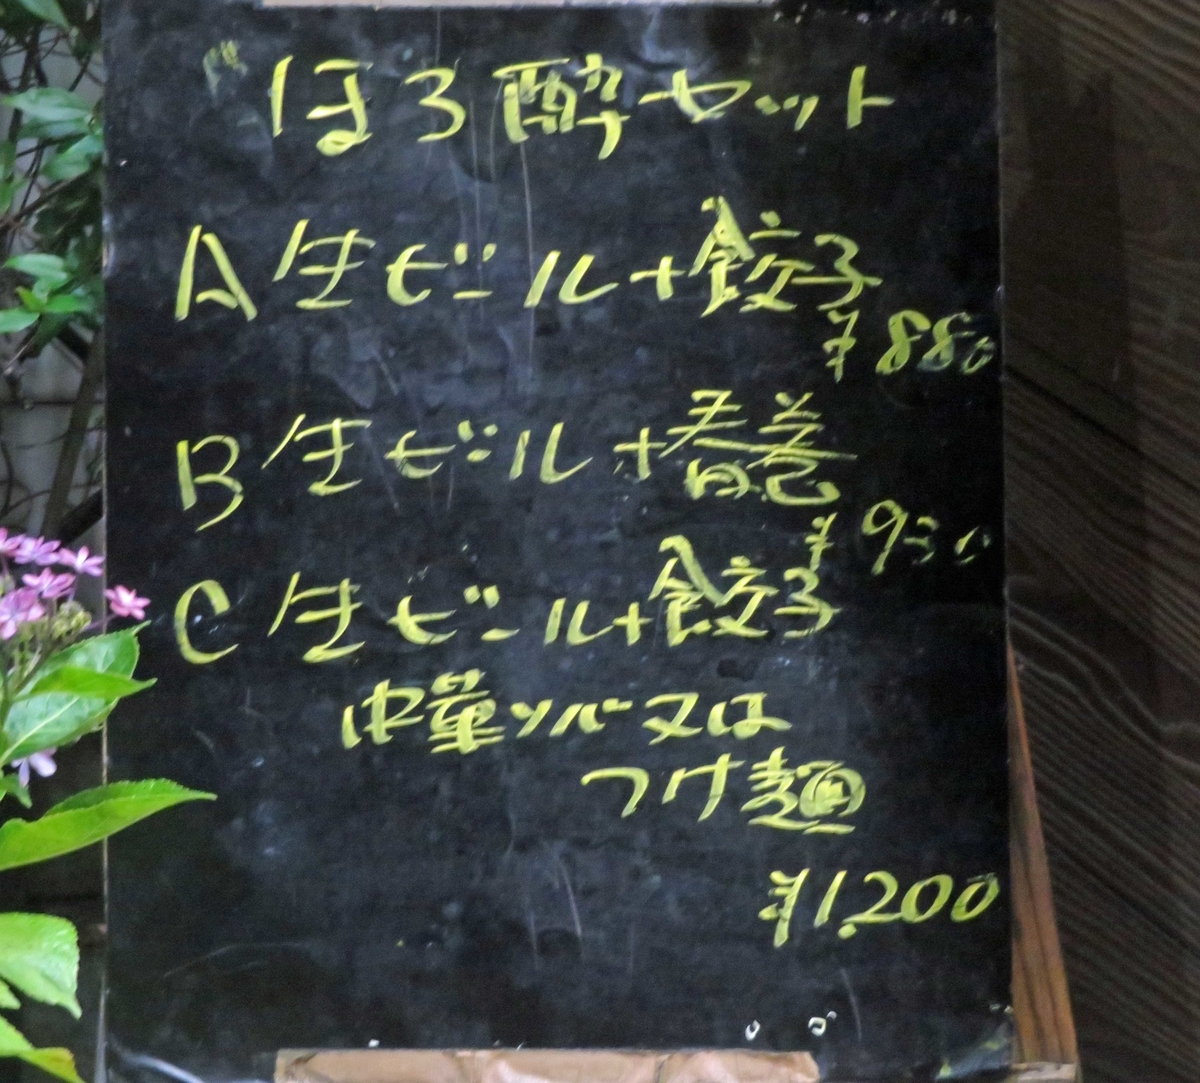 ほろ酔セット
A 生ビール+餃子
¥880
B 生ビール+春巻
¥930
C 生ビール+餃子
中華ソバ又は
つけ麺
¥1,200